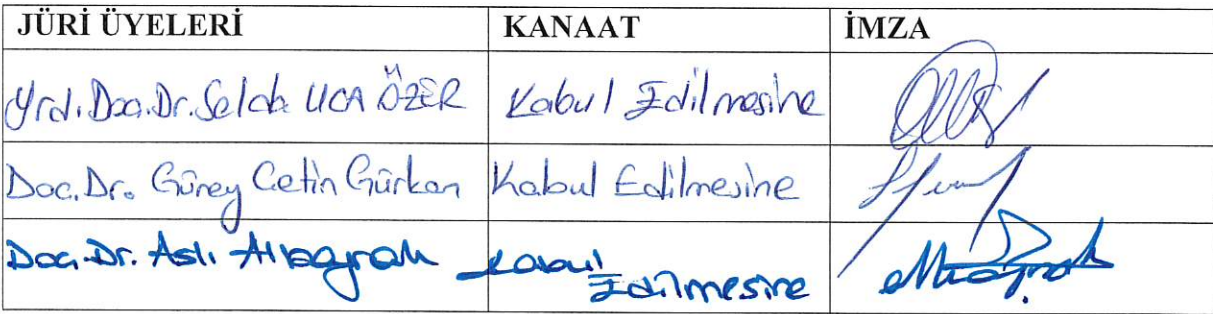 JÜRİ ÜYELERİ KANAAT İMZA
Yrd. Doç. Dr. Selda UCA ÖZER Kabul Edilmesine
Doç. Dr. Güney Çetin Gürkan Kabul Edilmesine
Doç. Dr. Aslı Albayrak Kabul
Edilmesine